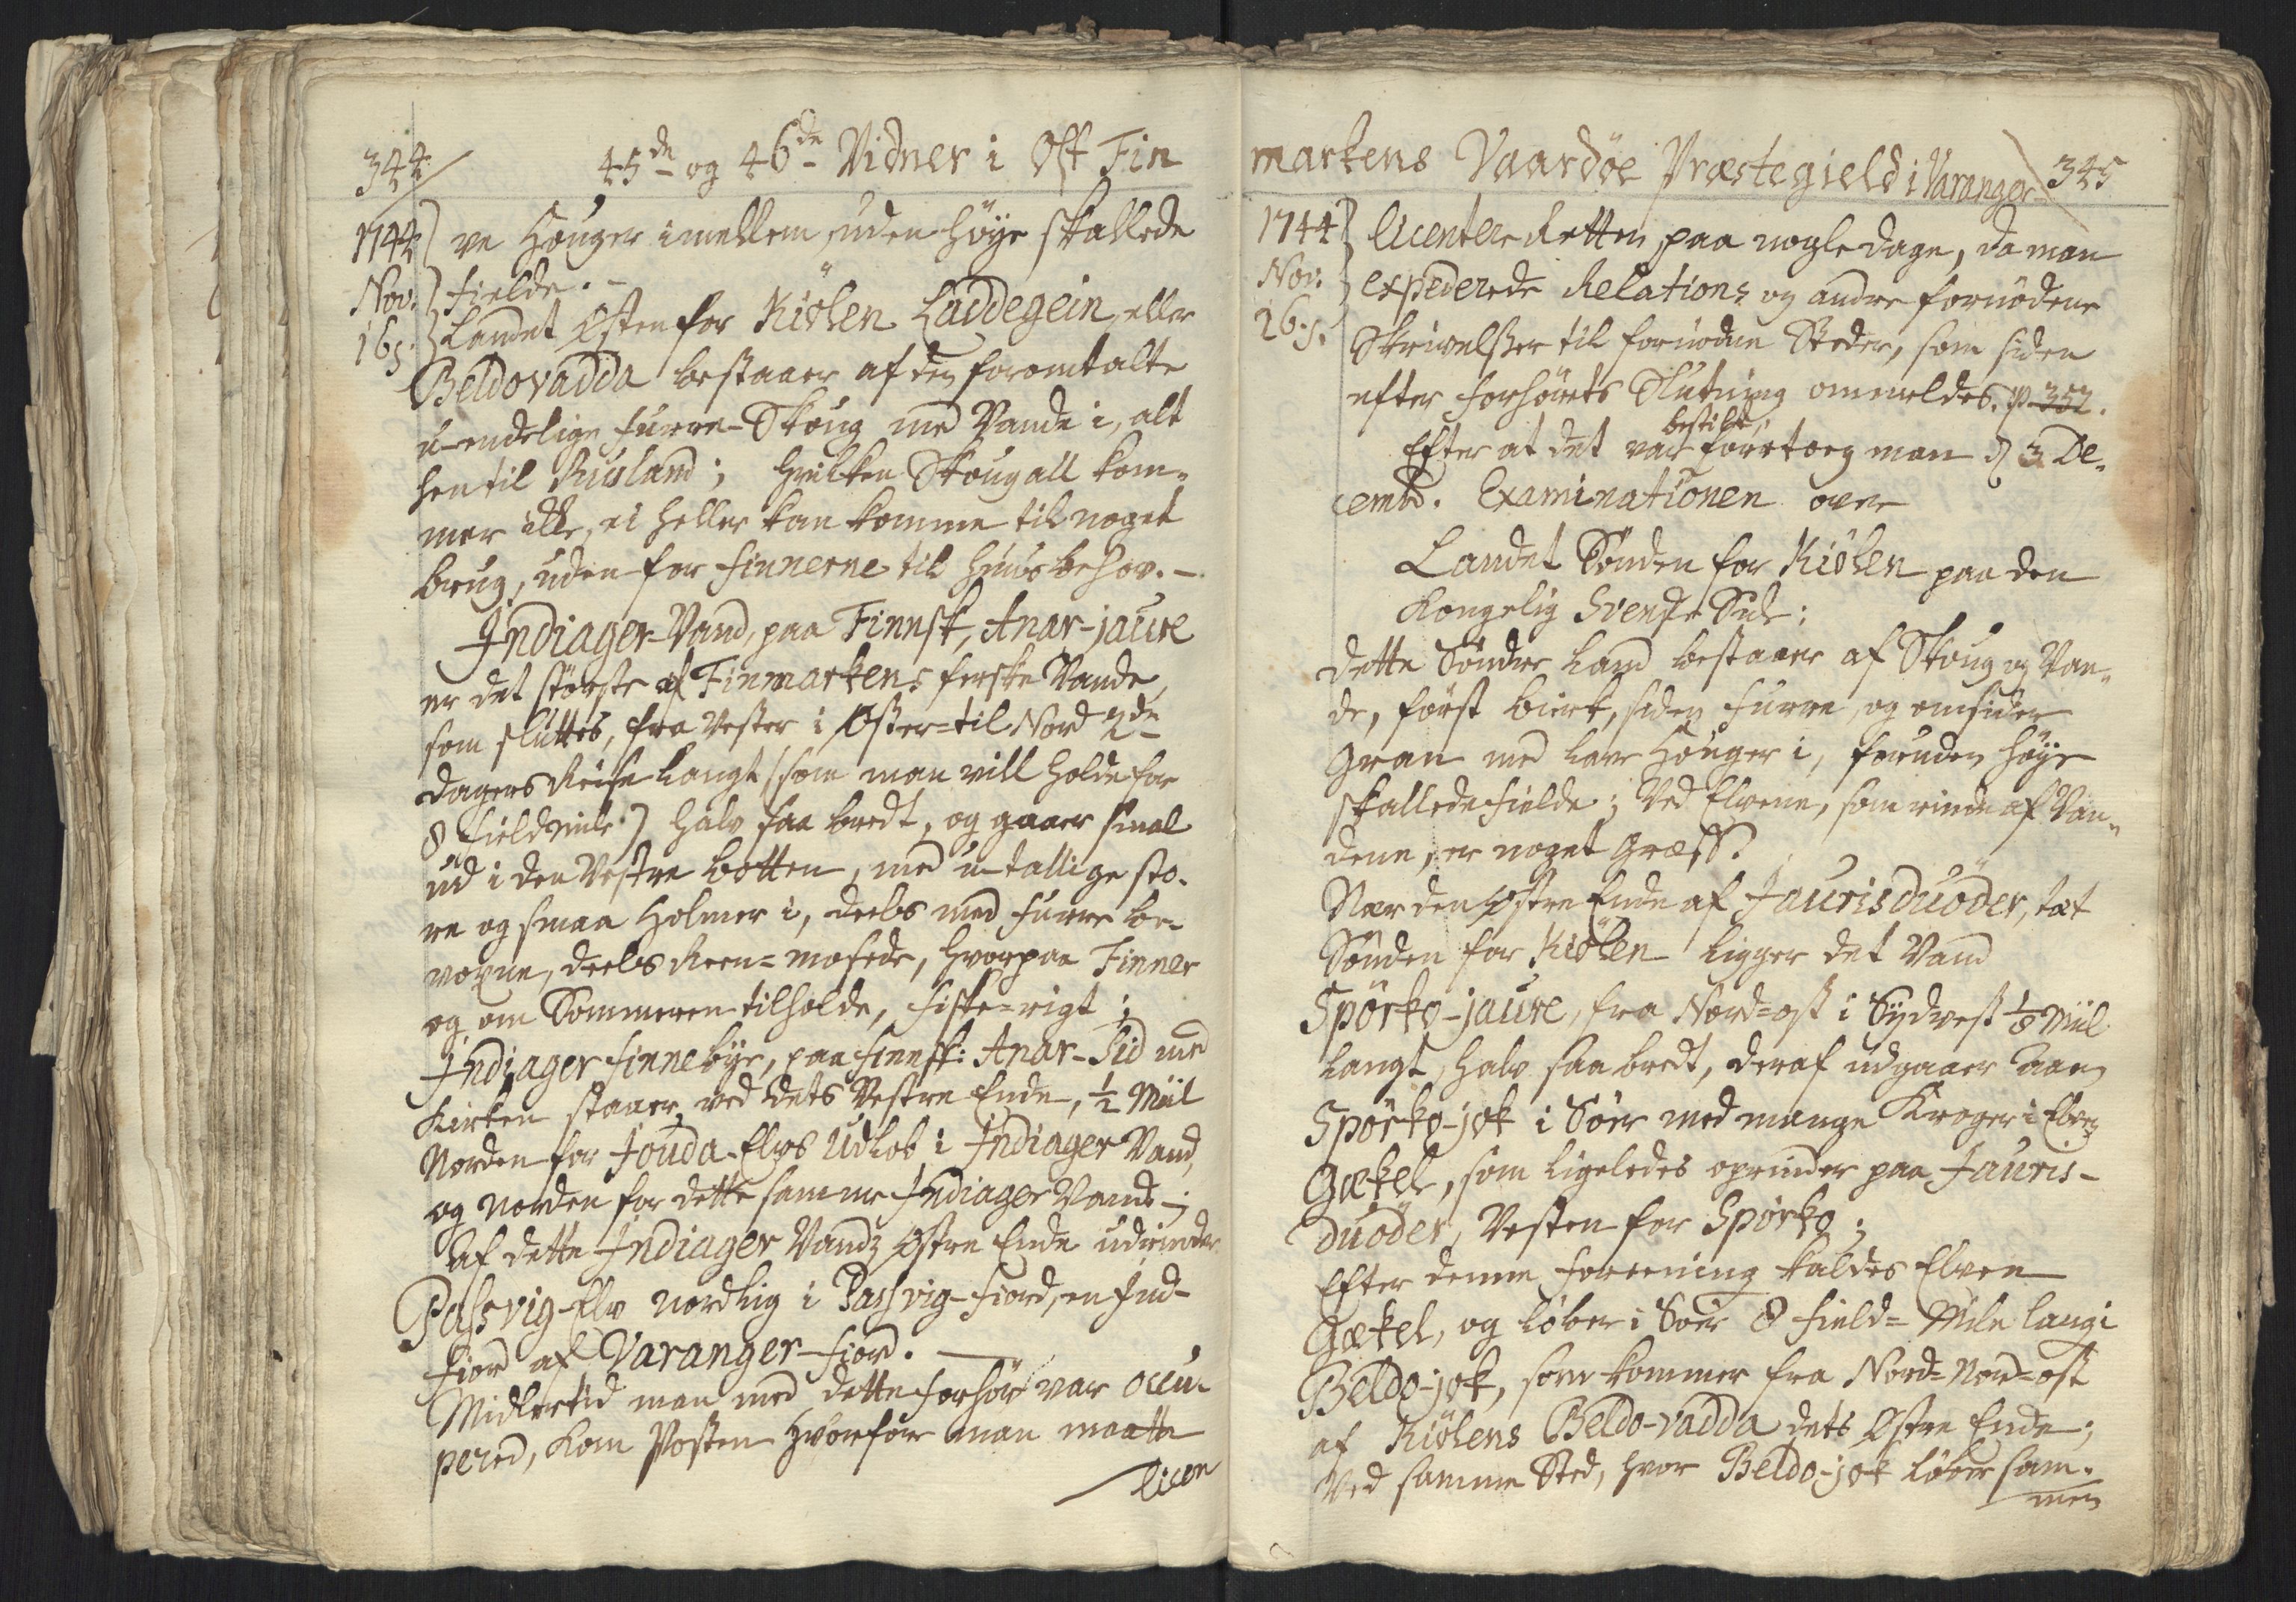 344
45de og 46de Vidner i Ost Fin
1744
Nov.
16.
ve Houger imellem, uden høye skallede
Fielde. -
Landet Østen for Kiölen Laddegein, eller
Beldovadda bestaaer af den foromtalte
u-endelige Furre-Skoug med Vande i, alt
hen til Rusland; Hvilken Skoug all kom-
mer ikke, ei heller kan komme til noget
brug, uden for Finnerne til Huusbehov. -
Indiager-Vand, paa Finnsk, Anar-jaure
er det störste af Finmarkens ferske Vande,
som sluttes, fra Vester i Øster-til Nord 2de
Dagers Reise langt (som man vill holde for
8 Fieldmile.) halv saa bredt, og gaaer smal
ud i den Vestre botten, med u-tallige sto-
re og smaa Holmer i, deels med Furre be-
voxne, deels Reen-mosede, hvorpaa Finner
og om Sommeren tilholde, Fiske-rigt;
Indiager finnebye, paa finnsk: Anar-Sid med
Kirken staaer ved dets Vestre Ende, ½ Miil
Norden for Jouda-Elvs Udlob i Indiager Vand,
og Norden for dette samme Indiager Vand-;
Af dette Indiager Vandz Østre Ende udrinder
Passvig-Elv nordlig i Passvig-Fiord, en Ind-
fiord af Varanger-Fiord. -
Midlertid man med dette Forhör var occu-
pered, kom Posten hvorfor man maatte
licen
markens Vaardöe Præstegield i Varanger
345
1744
Nov.
26.
licentere Retten paa nogle Dage, da man
expederede Relations og andre fornödene
Skrivelsser til fornödne Steder, som siden
efter Forhörets Slutning ommeldes. p. 352.
bestilt,
Efter at det var foretoeg man d 3 De-
cemb. Examinationen over
Landet Sönden for Kiölen paa den
Kongelig Svenske Side:
Dette Söndre Land bestaaer af Skoug og Van-
de, först birk, siden Furre, og omsider
Gran med lave Houger i, foruden høye
skallede Fielde; Ved Elvene, som rinde af Van-
dene, er noget Græss.
Nær den Østre Ende af Jaurisduöder, tæt
Sönden for Kiölen ligger det Vand
Spörko-jaure, fra Nord-ost i Sydvest ⅛ Miil
langt, halv saa bredt, deraf udgaaer Aaen
Spörko-jok i Söer med mange Kroger i Elven
Gækel, som ligeledes oprinder paa Jauris-
duöder, Vesten for Spörko;
Efter denne foreening kaldes Elven
Gækel, og löber i Söer 8 Field-Mile lang i
Beldo-jok, som kommer fra Nord-Nord-ost
af Kiölens Beldo-vadda dets Østre Ende;
Ved samme Sted, hvor Beldo-jok löber sam-
men